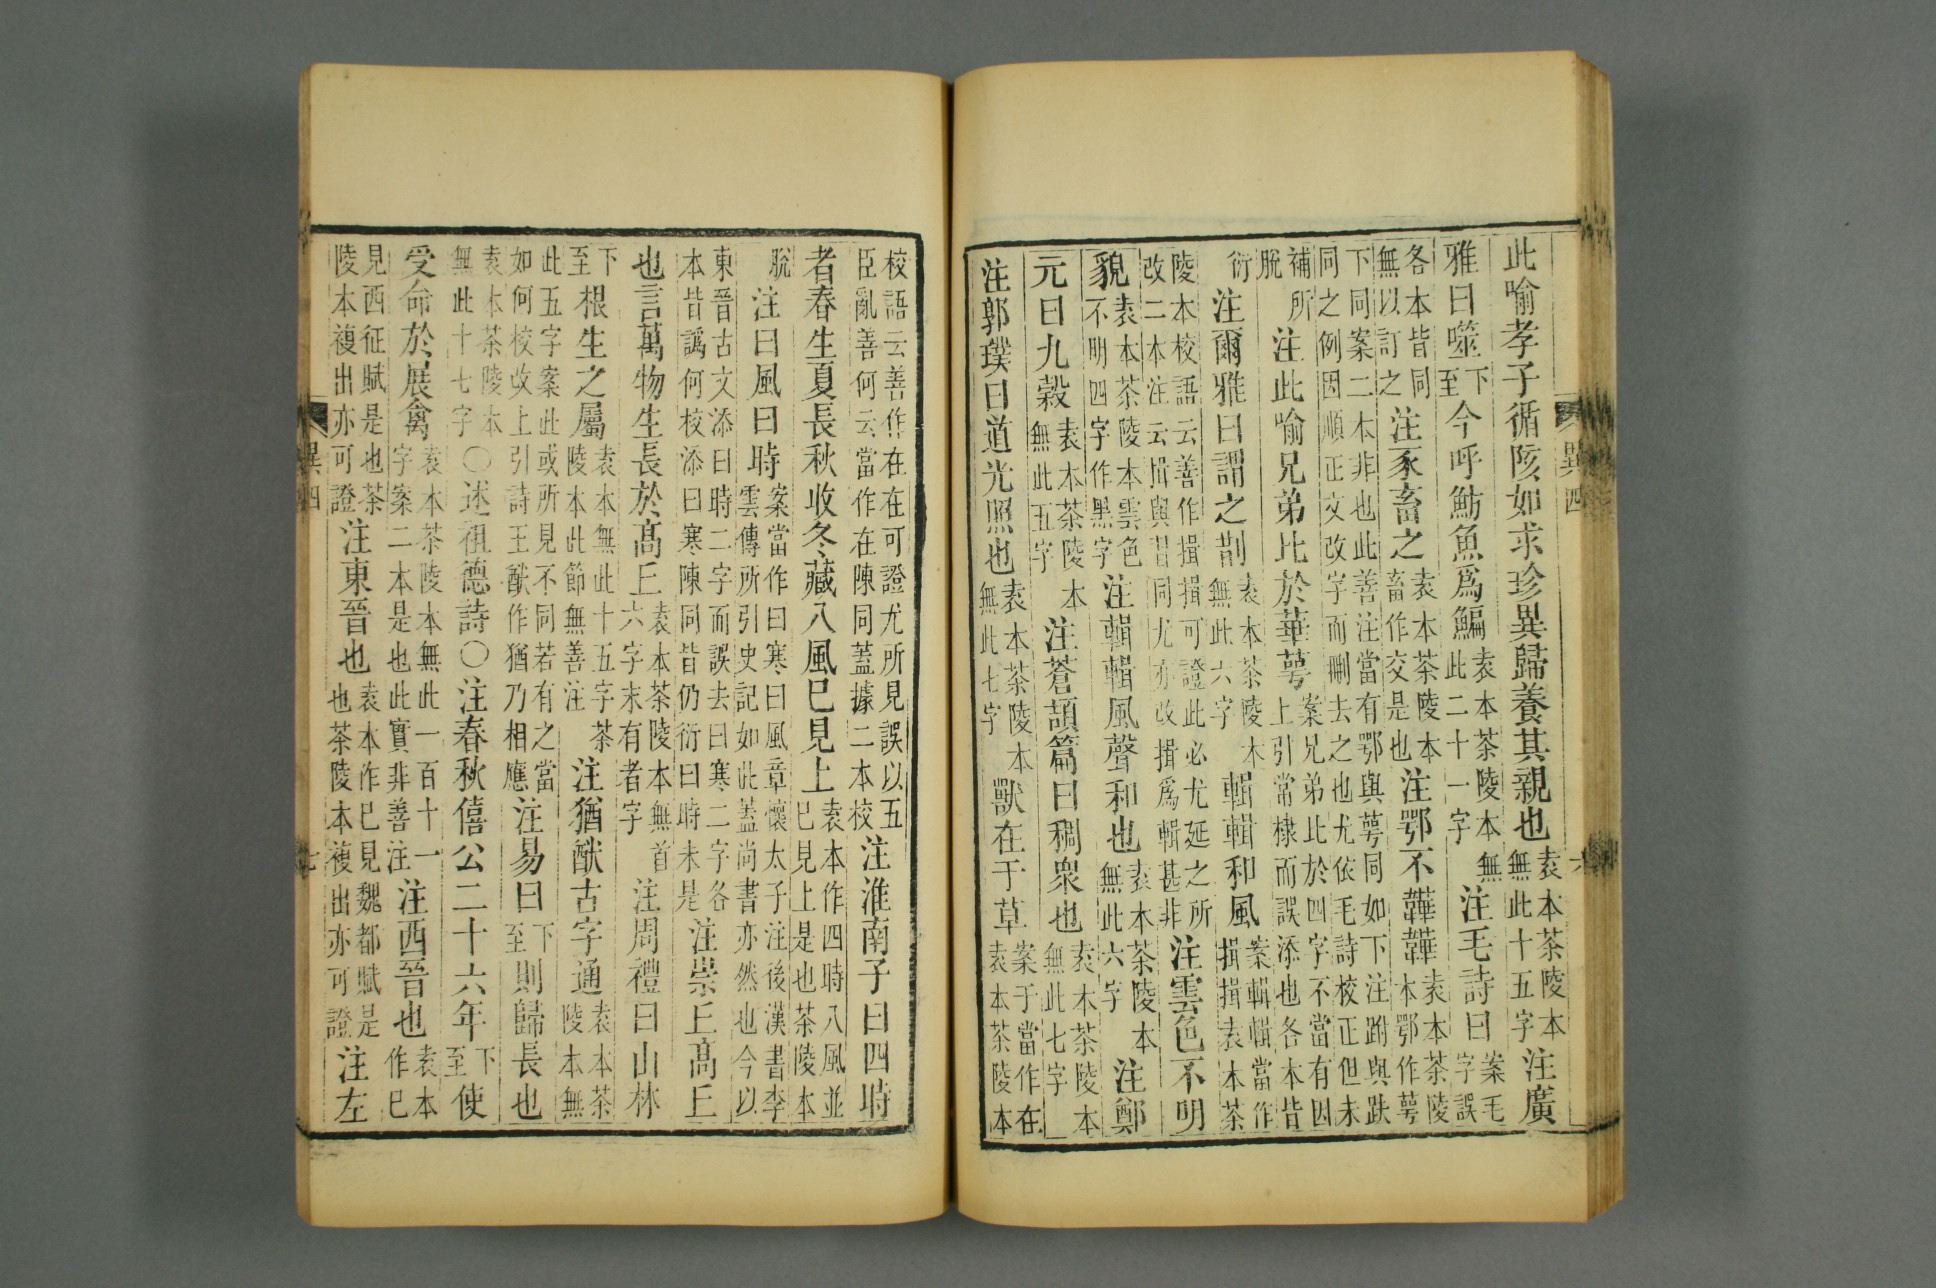 異四 六
此喻孝子循陔如求珍異歸養其親也袁本茶陵本無此十五字注廣
雅曰噬下至今呼魴魚爲鯿袁本茶陵本無此二十一字注毛詩曰案毛字誤
各本皆同無以訂之注豕畜之袁本茶陵本畜作交是也注鄂不韡韡袁本茶陵本鄂作萼
下同案二本非也此善注當有鄂與萼同如下注跗與趺同之例因順正文改字而刪去之也尤依毛詩校正但未
補所脫注此喻兄弟比於華萼案兄弟比於四字不當有因上引常棣而誤添也各本皆
衍注爾雅曰謂之剒袁本茶陵本無此六字輯輯和風案輯輯當作揖揖袁本茶
陵本校語云善作揖揖可證此必尤延之所改二本注云揖與習同尤亦改揖爲輯甚非注雲色不明
貌袁本茶陵本雲色不明四字作黑字注輯輯風聲和也袁本茶陵本無此六字注鄭
元曰九穀袁本茶陵本無此五字注蒼頡篇曰稠衆也袁本茶陵本無此七字
注郭璞曰道光照也袁本茶陵本無此七字獸在于草案于當作在袁本茶陵本
校語云善作在在可證尤所見誤以五臣亂善何云當作在陳同蓋據二本校注淮南子曰四時
者春生夏長秋收冬藏八風巳見上袁本作四時八風並巳見上是也茶陵本
脫注曰風曰時案當作曰寒曰風章懷太子注後漢書李雲傳所引史記如此蓋尚書亦然也今以
東晉古文添曰時二字而誤去曰寒二字各本皆譌何校添曰寒陳同皆仍衍曰時未是注崇丘高丘
也言萬物生長於高丘袁本茶陵本無首六字末有者字注周禮曰山林
下至根生之屬袁本無此十五字茶陵本此節無善注注猶猷古字通袁本茶陵本無
此五字案此或所見不同若有之當如何校改上引詩王猷作猶乃相應注易曰下至則歸長也
袁本茶陵本無此十七字○述祖德詩○注春秋僖公二十六年下至使
受命於展禽袁本茶陵本無此一百十一字案二本是也此實非善注注西晉也袁本作巳
見西征賦是也茶陵本複出亦可證注東晉也袁本作巳見魏都賦是也茶陵本複出亦可證注左
異四 七